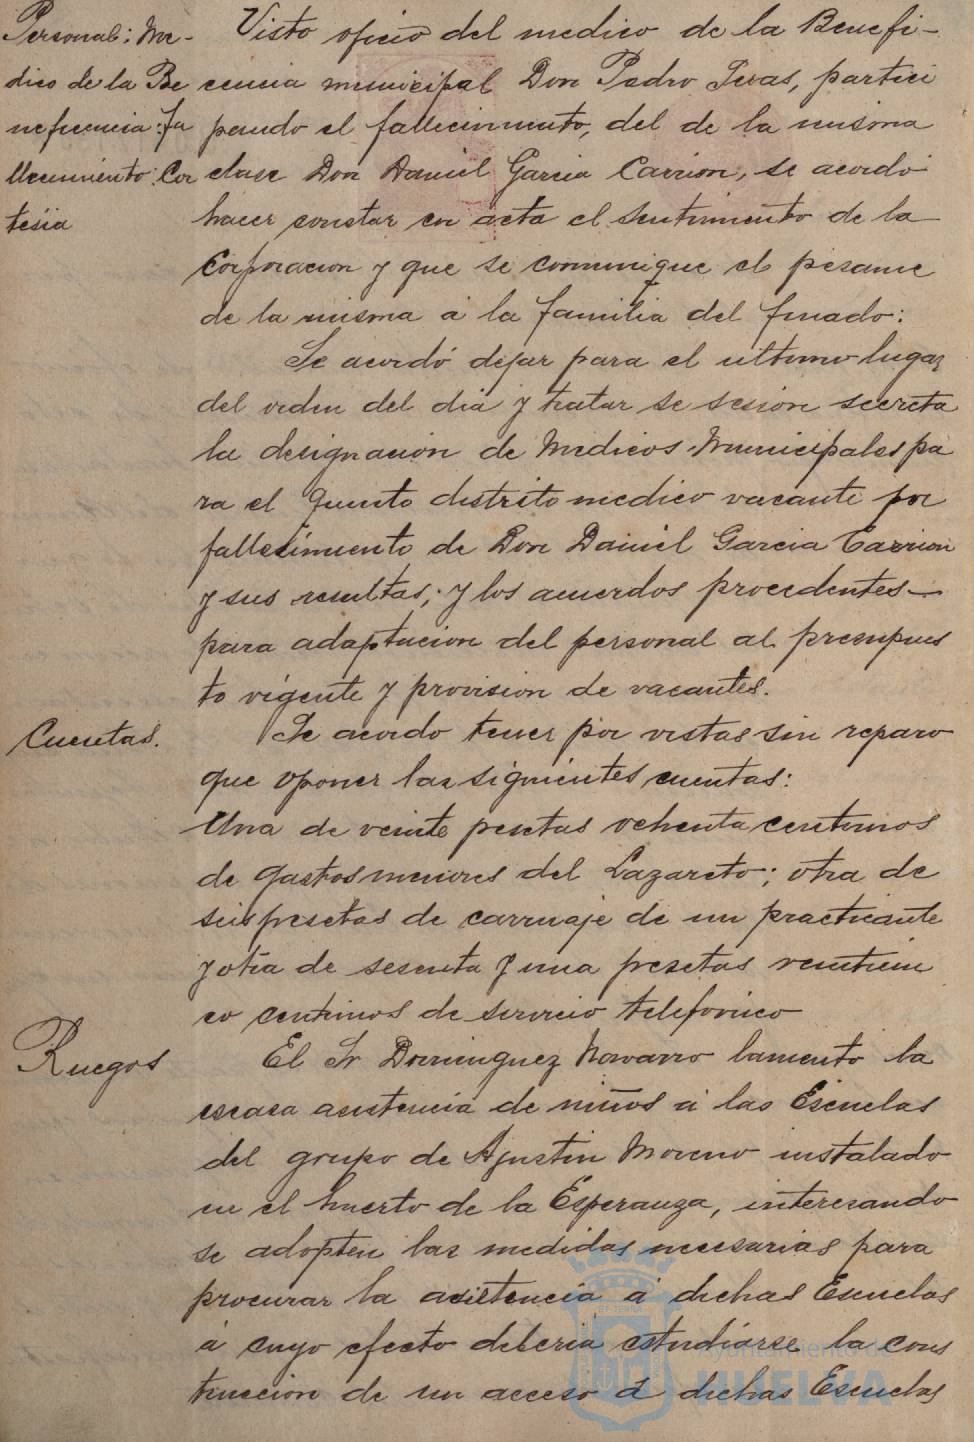 Personal: Me-
dico de la Be
neficencia: fa
llecimiento: Cor
tesia
Visto oficio del medico de la Benefi-
cencia municipal Don Pedro Seras, partici
pando el fallecimiento, del de la misma
clase Don Daniel Garcia Carrion, se acordó
hacer constar en acta el sentimiento de la
Corporacion y que se comunique el pesame
de la misma á la familia del finado:
Se acordó dejar para el ultimo lugar
del orden del dia y tratar se sesion secreta
la designacion de Medicos Municipales pa
ra el quinto distrito medico vacante por
fallecimiento de Don Daniel Garcia Carrion
y sus resultas; y los acuerdos procedentes—
para adaptacion del personal al presupues
to vigente y provision de vacantes.
Cuentas.
Se acordo tener por vistas sin reparo
que oponer las siguientes cuentas:
Una de veinte pesetas ochenta centimos
de gastos menores del Lazareto; otra de
seis pesetas de carruaje de un practicante
y otra de sesenta y una pesetas veinticin
co centimos de servicio telefonico
Ruegos
El Sr Dominguez Navarro lamento la
escasa asistencia de niños á las Escuelas
del grupo de Agustin Moreno instalado
en el huerto de la Esperanza, interesando
se adopten las medidas necesarias para
procurar la asistencia á dichas Escuelas
á cuyo efecto deberia estudiarse la cons
truccion de un acceso á dichas Escuelas
Ayuntamiento de
HUELVA